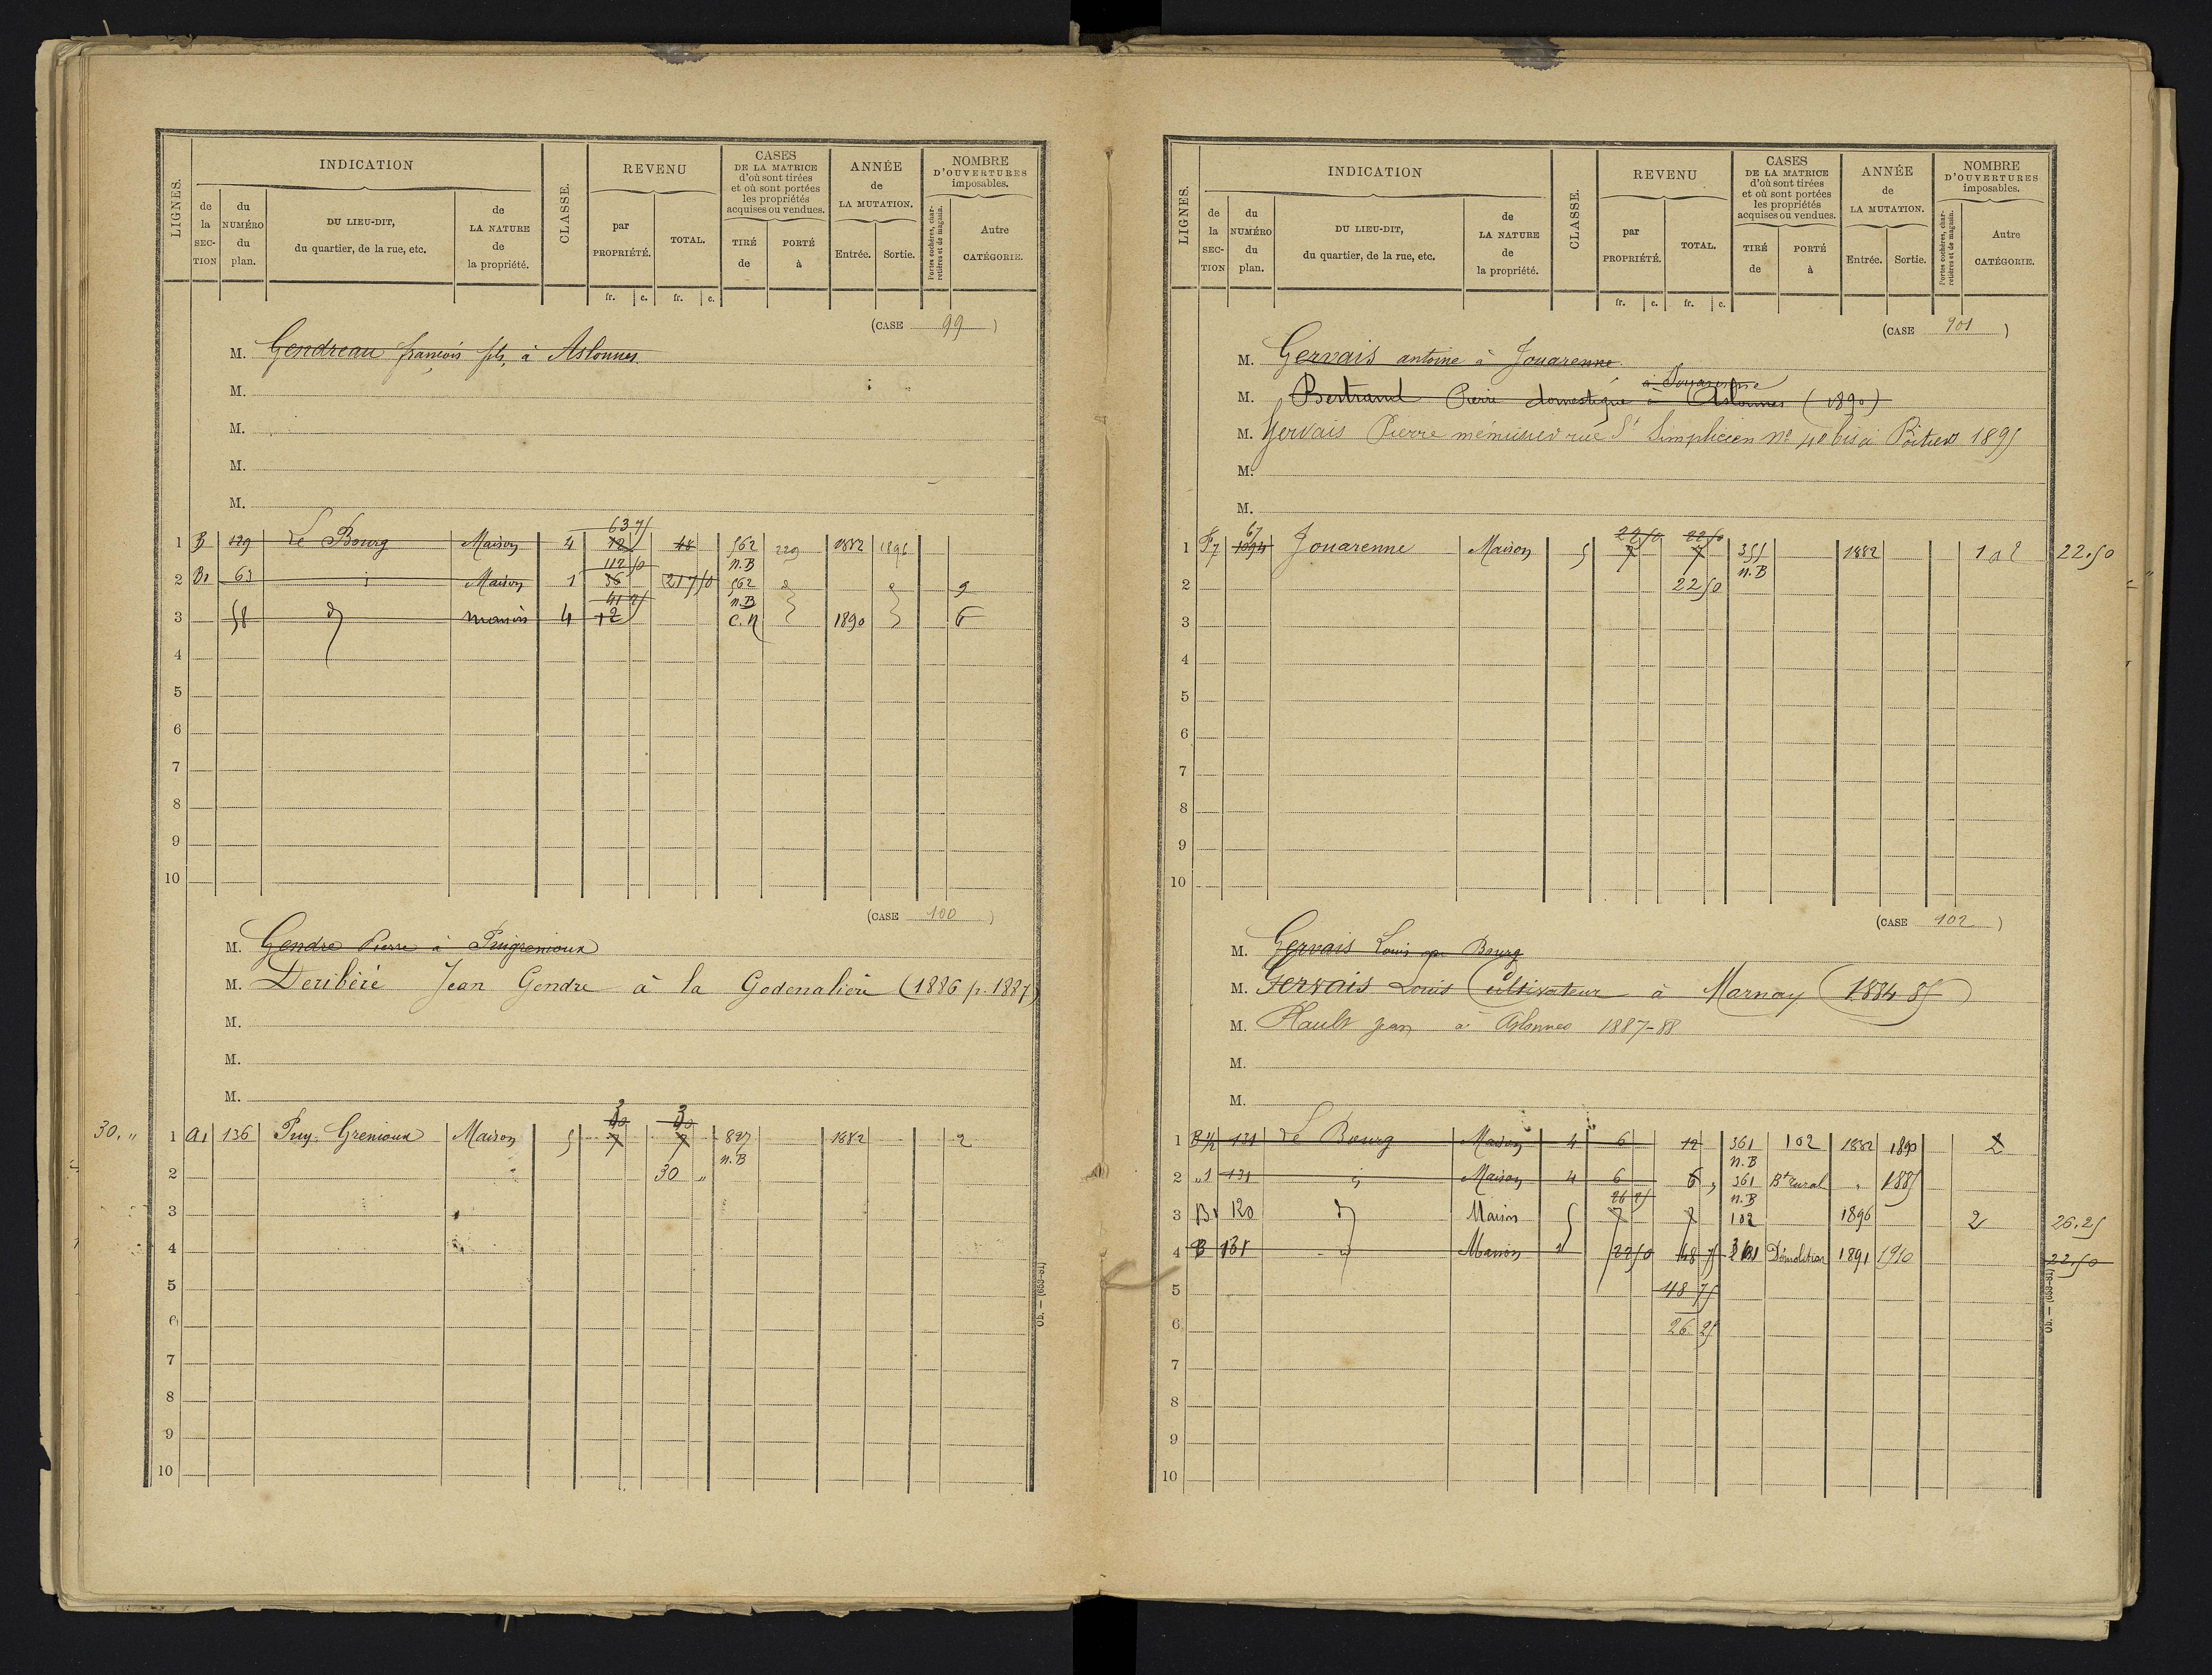 LIGNES.
INDICATION
de la SEC-TION
du NUMÉRO du plan.
DU LIEU-DIT, du quartier, de la rue, etc.
de LA NATURE de la propriété.
CLASSE.
REVENU
par PROPRIÉTÉ.
TOTAL.
fr. c. fr. c.
CASES DE LA MATRICE d'où sont tirées et où sont portées les propriétés acquises ou vendues.
TIRÉ de
PORTÉ à
ANNÉE de LA MUTATION.
Entrée. Sortie.
NOMBRE D'OUVERTURES imposables.
Portes cochères, charretières et de magasin.
Autre CATÉGORIE.
(CASE 99)
M. Gendreau françois fils, à Aslonnes
M.
M.
M.
M.
63 75
1 B 129 Le Bourg Maison 4 12 48 562 229 1882 1896
112 50 n.B
2 B1 63 i Maison 1 36 217 50 562 9
41 25 n.B
3 58 d Maison 4 12 C.N 1890 6
4
5
6
7
8
9
10
(CASE 100)
M. Gendre Pierre à Puigremoux
M. Deribéré Jean Gendre à la Godenalière (1886 p. 1887)
M.
M.
M.
30 30
30. „ 1 A1 136 Puy Grenioux Maison 5 7 7 827 1882 2
n.B
2 30 „
3
4
5
6
7
8
9
10
Ob. — (659-81)
LIGNES.
INDICATION
de la SEC-TION
du NUMÉRO du plan.
DU LIEU-DIT, du quartier, de la rue, etc.
de LA NATURE de la propriété.
CLASSE.
REVENU
par PROPRIÉTÉ.
TOTAL.
fr. c. fr. c.
CASES DE LA MATRICE d'où sont tirées et où sont portées les propriétés acquises ou vendues.
TIRÉ de
PORTÉ à
ANNÉE de LA MUTATION.
Entrée. Sortie.
NOMBRE D'OUVERTURES imposables.
Portes cochères, charretières et de magasin.
Autre CATÉGORIE.
(CASE 101)
M. Gervais antoine à Jouarenne
à Jouarenne
M. Bertrand Pierre domestique à Aslonnes (1890)
M. Gervais Pierre ménuisier rue St Simplicien No 40 bis à Poitiers 1895
M.
M.
67 22 50 22 50
1 F7 Jouarenne Maison 5 7 7 355 1882 22.50
n.B
2 22 50
3
4
5
6
7
8
9
10
(CASE 102)
M. Gervais Louis au Bourg
M. Gervais Louis Cultivateur à Marnay (1884 85)
M. Plault Jean à Aslonnes 1887-88
M.
M.
1 B 1/2 131 Le Bourg Maison 4 6 12 361 102 1882 1890 2
n.B
2 „1 131 i Maison 4 6 6 361 Bt rural „ 1885
26 25 n.B
3 B1 120 d Maison 5 7 7 102 1896 2 26.25
4 B 131 d Maison 22 50 48 75 Démolition 1891 1910 22.50
5 48 75
6 26 25
7
8
9
10
Ob. — (659-81)